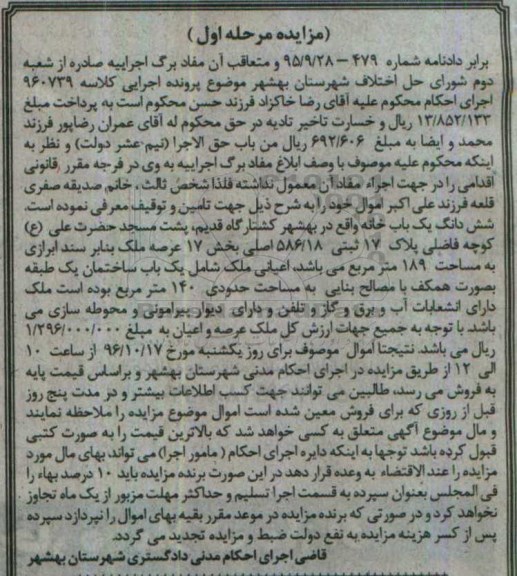 (مزایده مرحله اول)
برابر دادنامه شماره ۴۷۹ – ۹۵/۹/۲۸ و متعاقب آن مفاد برگ اجراییه صادره از شعبه
دوم شورای حل اختلاف شهرستان بهشهر موضوع پرونده اجرایی کلاسه ۹۶۰۷۳۹
اجرای احکام محکوم علیه آقای رضا خاکزاد فرزند حسن محکوم است به پرداخت مبلغ
۱۳/۸۵۲/۱۳۳ ریال و خسارت تاخیر تادیه در حق محکوم له آقای عمران رضاپور فرزند
محمد و ایضا به مبلغ ۶۹۲/۶۰۶ ریال من باب حق الاجرا (نیم عشر دولت) و نظر به
اینکه محکوم علیه موصوف با وصف ابلاغ مفاد برگ اجراییه به وی در فرجه مقرر قانونی
اقدامی را در جهت اجراء مفاد آن معمول نداشته فلذا شخص ثالث ، خانم صدیقه صفری
قلعه فرزند علی اکبر اموال خود را به شرح ذیل جهت تامین و توقیف معرفی نموده است.
شش دانگ یک باب خانه واقع در بهشهر کشتارگاه قدیم، پشت مسجد حضرت علی (ع)
کوچه فاضلی پلاک ۱۷ ثبتی ۵۸۶/۱۸ اصلی بخش ۱۷ عرصه ملک بنابر سند ابرازی
به مساحت ۱۸۹ متر مربع می باشد، اعیانی ملک شامل یک باب ساختمان یک طبقه
بصورت همکف با مصالح بنایی به مساحت حدودی ۱۴۰ متر مربع بوده است ملک
دارای انشعابات آب و برق و گاز و تلفن و دارای دیوار پیرامونی و محوطه سازی می
باشد. با توجه به جمیع جهات ارزش کل ملک عرصه و اعیان به مبلغ ۱/۲۹۶/۰۰۰/۰۰۰
ریال می باشد. نتیجتا اموال موصوف برای روز یکشنبه مورخ ۹۶/۱۰/۱۷ از ساعت ۱۰
الی ۱۲ از طریق مزایده در اجرای احکام مدنی شهرستان بهشهر و براساس قیمت پایه
به فروش می رسد، طالبین می توانند جهت کسب اطلاعات بیشتر و در مدت پنج روز
قبل از روزی که برای فروش معین شده است اموال موضوع مزایده را ملاحظه نمایند
و مال موضوع آگهی متعلق به کسی خواهد شد که بالاترین قیمت را به صورت کتبی
قبول کرده باشد توجها به اینکه دایره اجرای احکام (مامور اجرا) می تواند بهای مال مورد
مزایده را عند الاقتضاء به وعده قرار دهد در این صورت برنده مزایده باید ۱۰ درصد بهاء را
فی المجلس بعنوان سپرده به قسمت اجرا تسلیم و حداکثر مهلت مزبور از یک ماه تجاوز
نخواهد کرد و در صورتی که برنده مزایده در موعد مقرر بقیه بهای اموال را نپردازد سپرده
پس از کسر هزینه مزایده به نفع دولت ضبط و مزایده تجدید می گردد.
قاضی اجرای احکام مدنی دادگستری شهرستان بهشهر